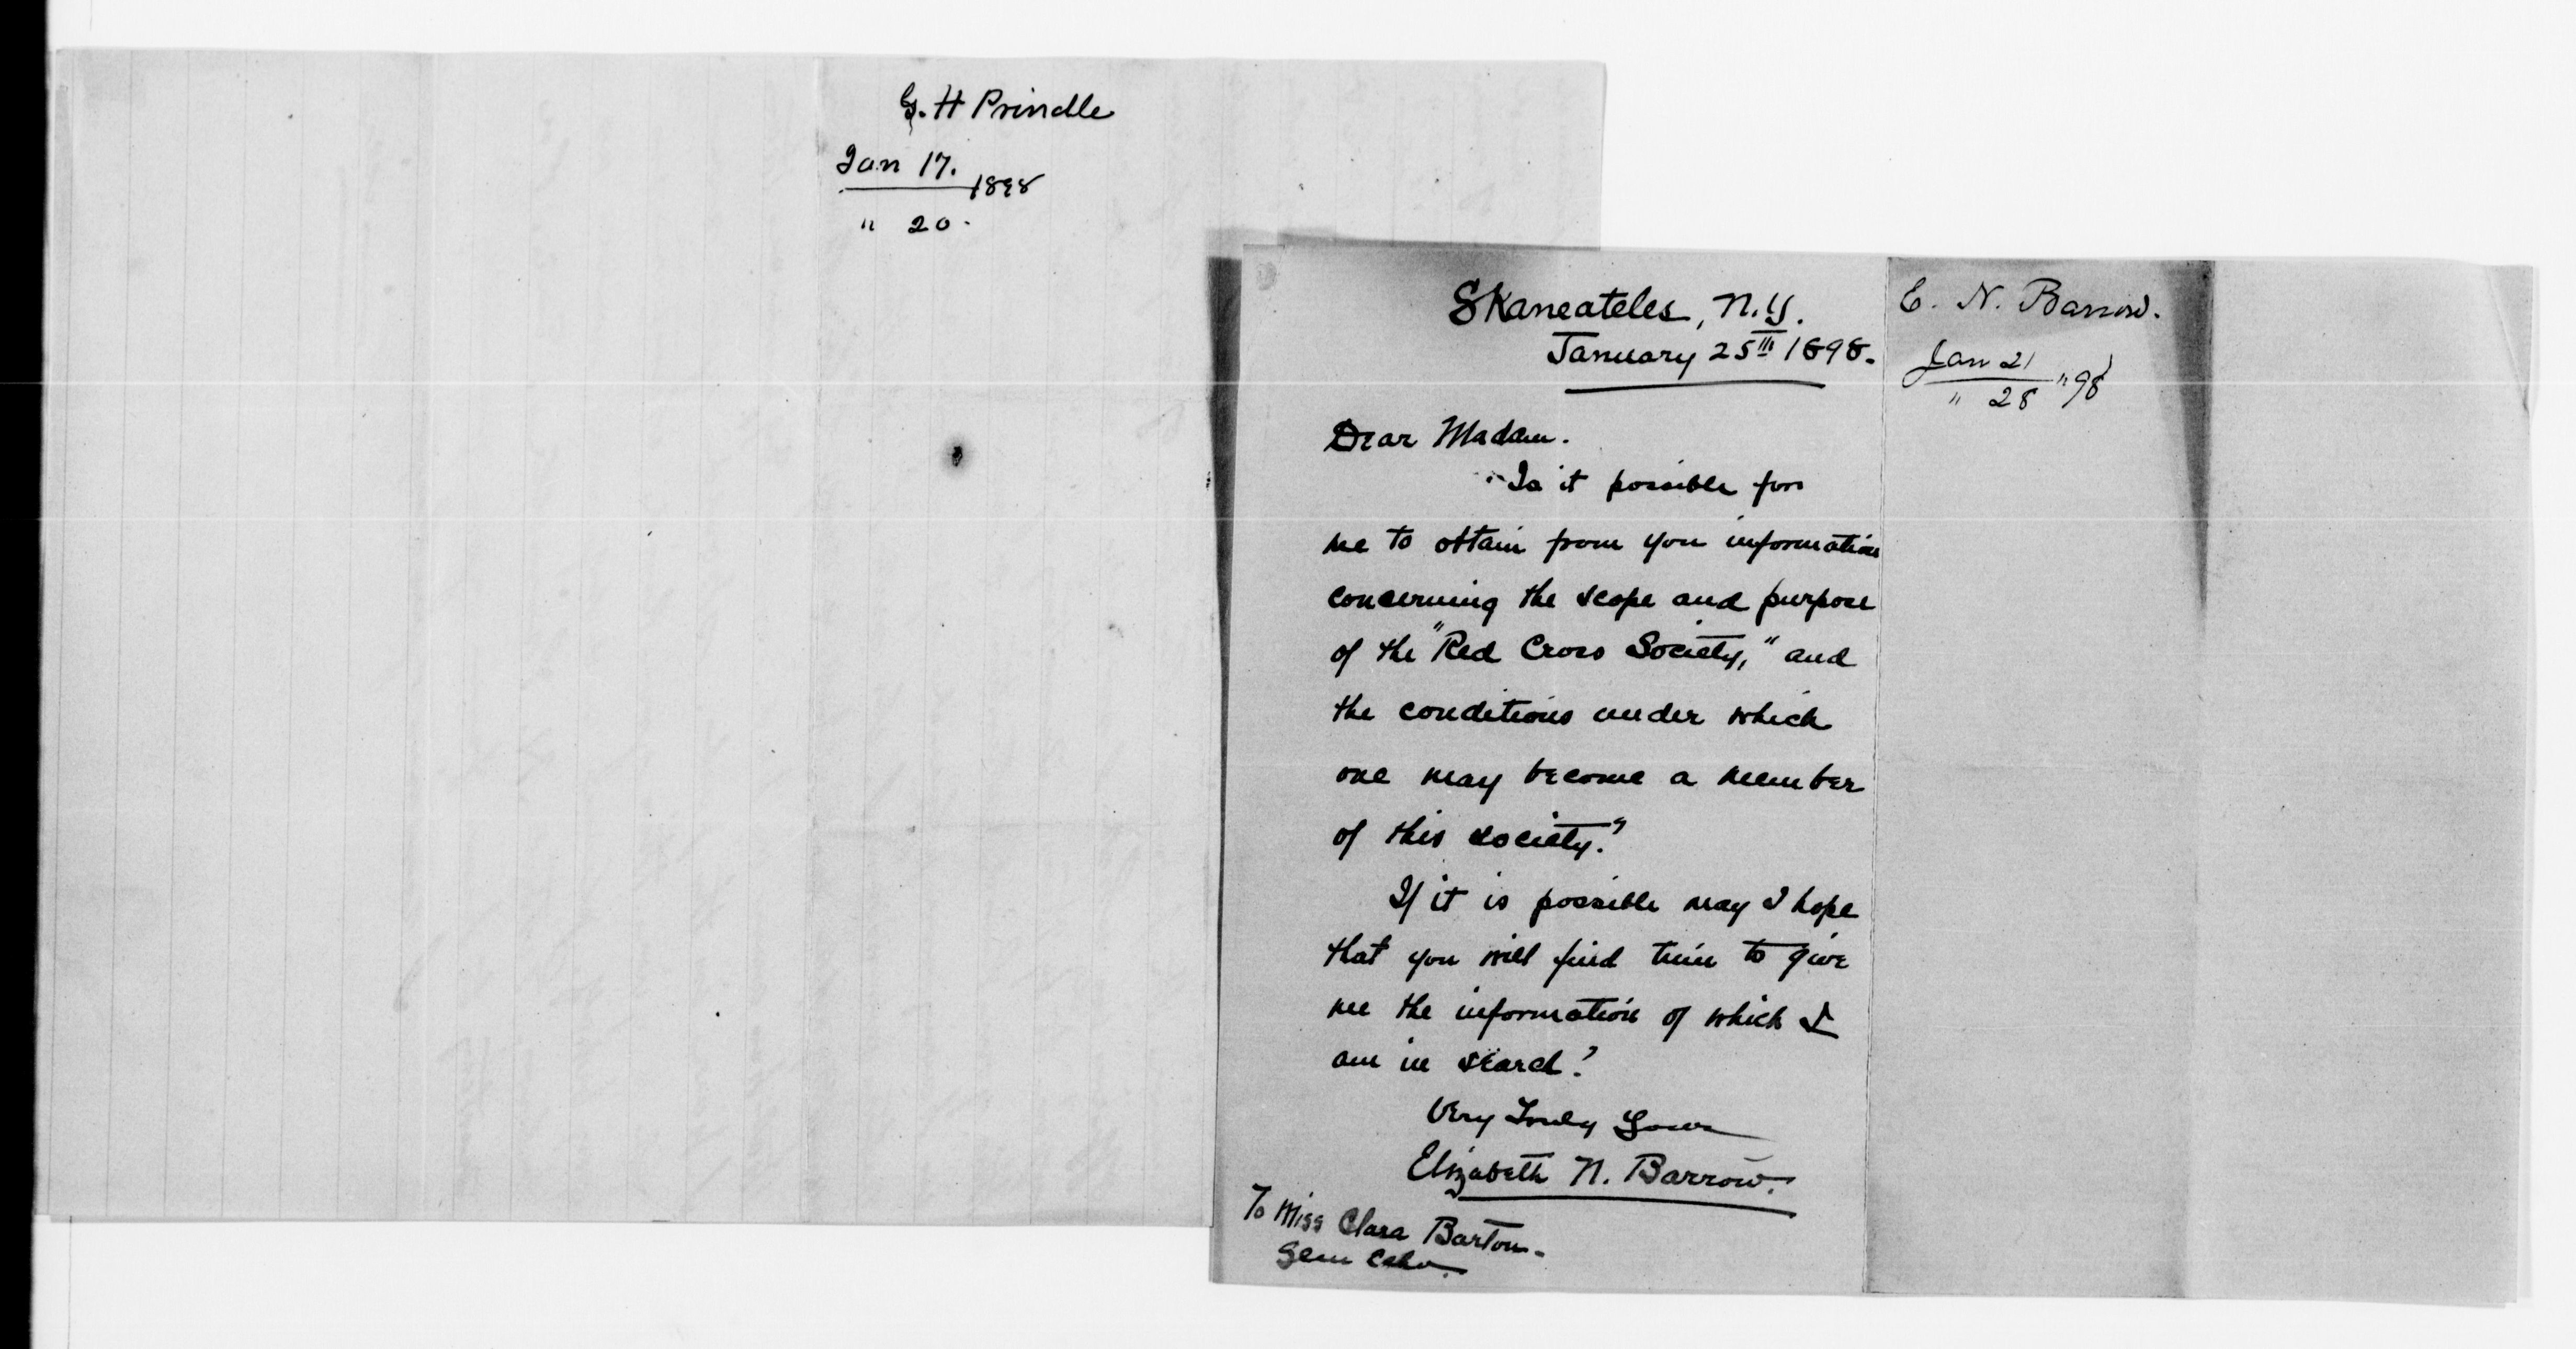 G. H Prindle
Jan 17.
1898
" 20.
Skaneateles, N.Y.
January 25th 1898.
Dear Madam.
Is it possible for
me to obtain from you information
concerning the scope and purpose
of the "Red Cross Society," and
the conditions under which
one may become a member
of this society?
If it is possible may I hope
that you will find time to give
me the information of which I
am in search?
Very Truly Yours
Elizabeth N. Barrow.
To Miss Clara Barton.
E. N. Barrow.
Jan 21
" 98
" 28